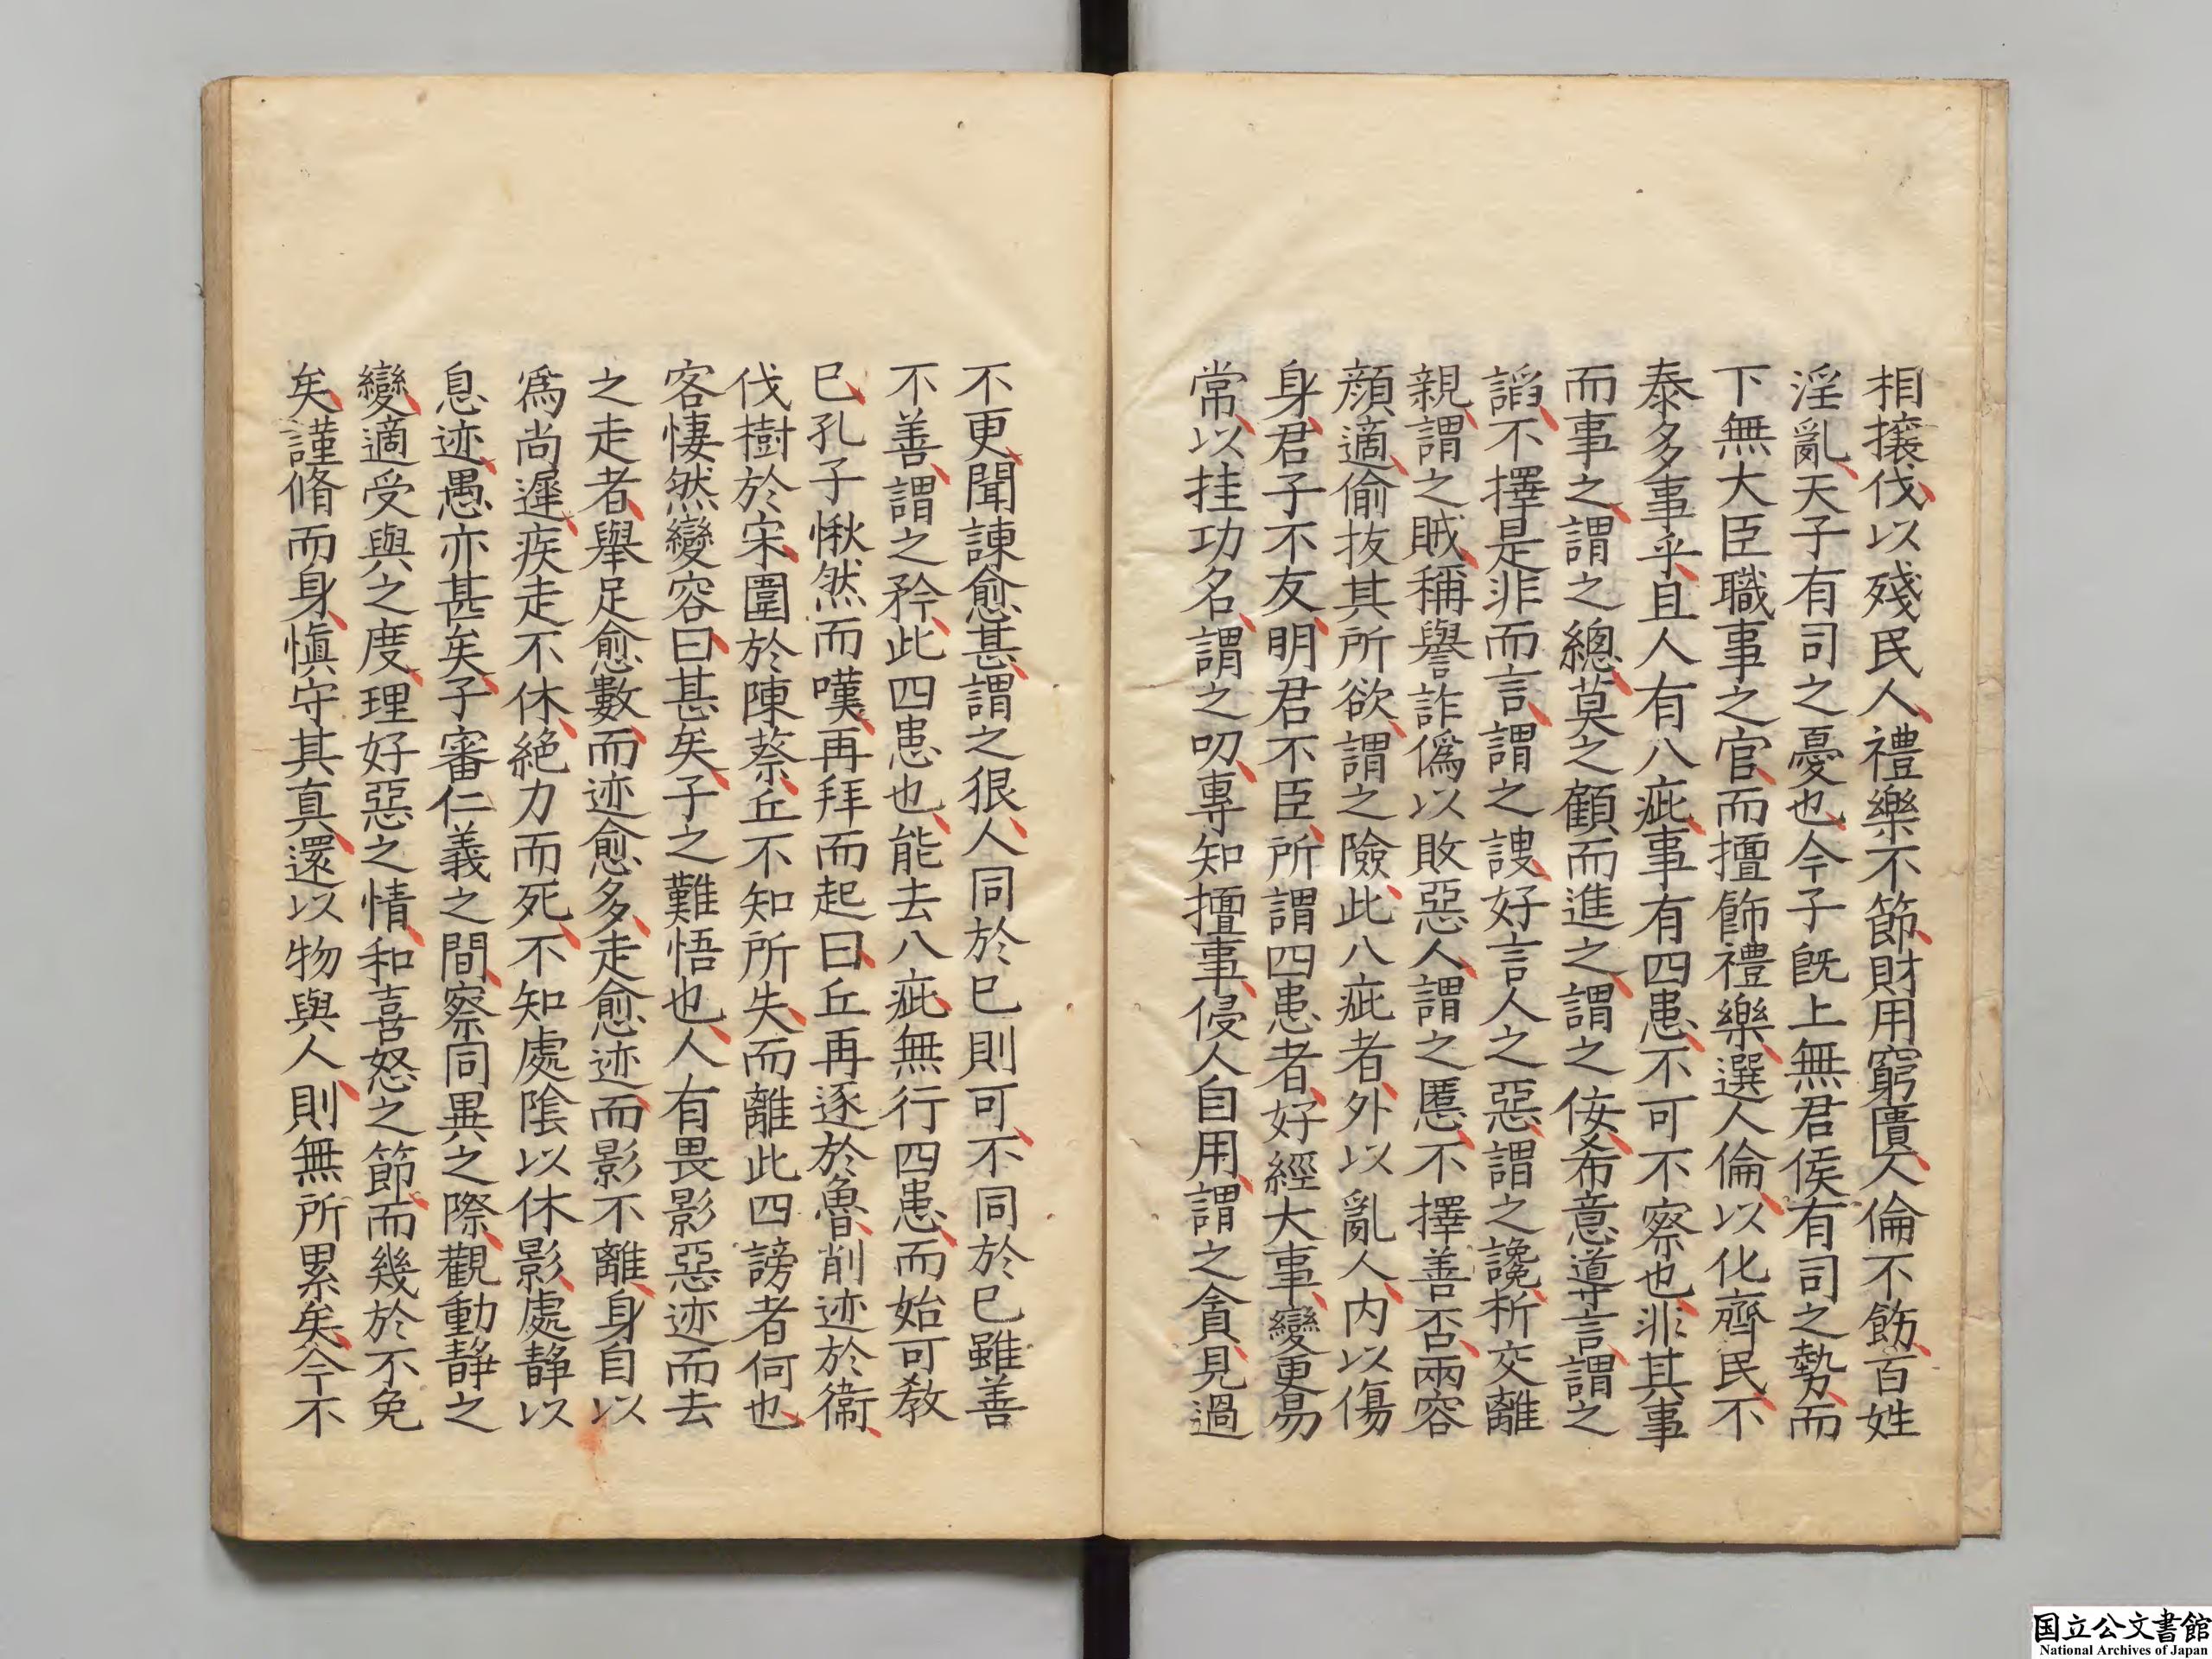 相攘伐以殘民人禮樂不節財用窮匱人倫不飭百姓
淫亂天子有司之憂也今子旣上無君侯有司之勢而
下無大臣職事之官而擅飾禮樂選人倫以化齊民不
泰多事乎且人有八疵事有四患不可不察也非其事
而事之謂之總莫之顧而進之謂之佞希意導言謂之
諂不擇是非而言謂之諛好言人之惡謂之讒析交離
親謂之賊稱譽詐僞以敗惡人謂之慝不擇善否兩容
顔適偷拔其所欲謂之險此八疵者外以亂人内以傷
身君子不友明君不臣所謂四患者好經大事變更易
常以挂功名謂之叨專知擅事侵人自用謂之貪見過
不更聞諫愈甚謂之狠人同於已則可不同於已雖善
不善謂之矜此四患也能去八疵無行四患而始可教
已孔子愀然而嘆再拜而起曰丘再逐於魯削迹於衛
伐樹於宋圍於陳蔡丘不知所失而離此四謗者何也
客悽然變容曰甚矣子之難悟也人有畏影惡迹而去
之走者舉足愈數而迹愈多走愈迹而影不離身自以
爲尚遲疾走不休絶力而死不知處陰以休影處靜以
息迹愚亦甚矣子審仁義之間察同異之際觀動靜之
變適受與之度理好惡之情和喜怒之節而幾於不免
矣謹脩而身愼守其真還以物與人則無所累矣今不
国立公文書館
National Archives of Japan